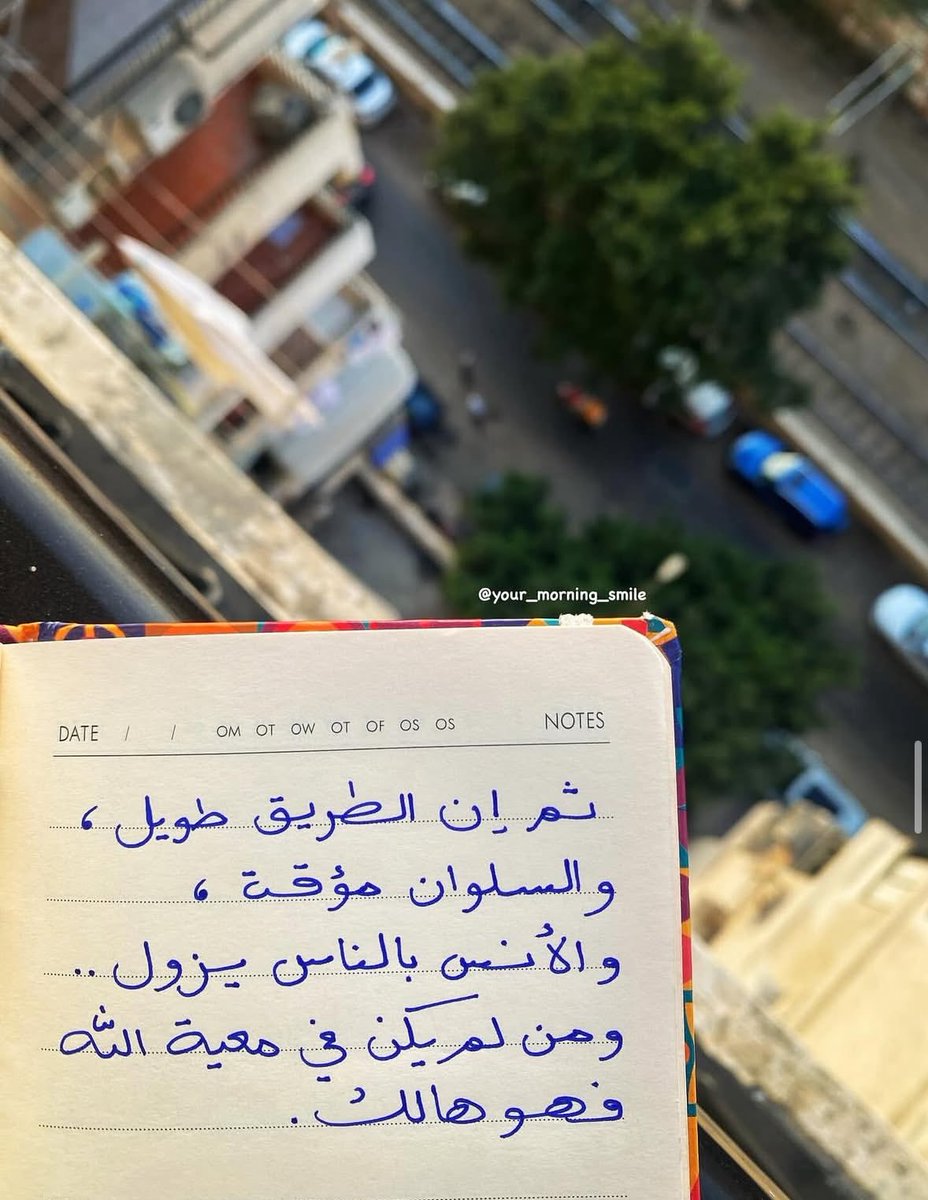 @your_morning_smile
DATE / / OM OT OW OT OF OS OS NOTES
ثم إن الطريق طويل ،
والسلوان مؤقت ،
والأُنس بالناس يزول ..
ومن لم يكن في معية الله
فهو هالك .